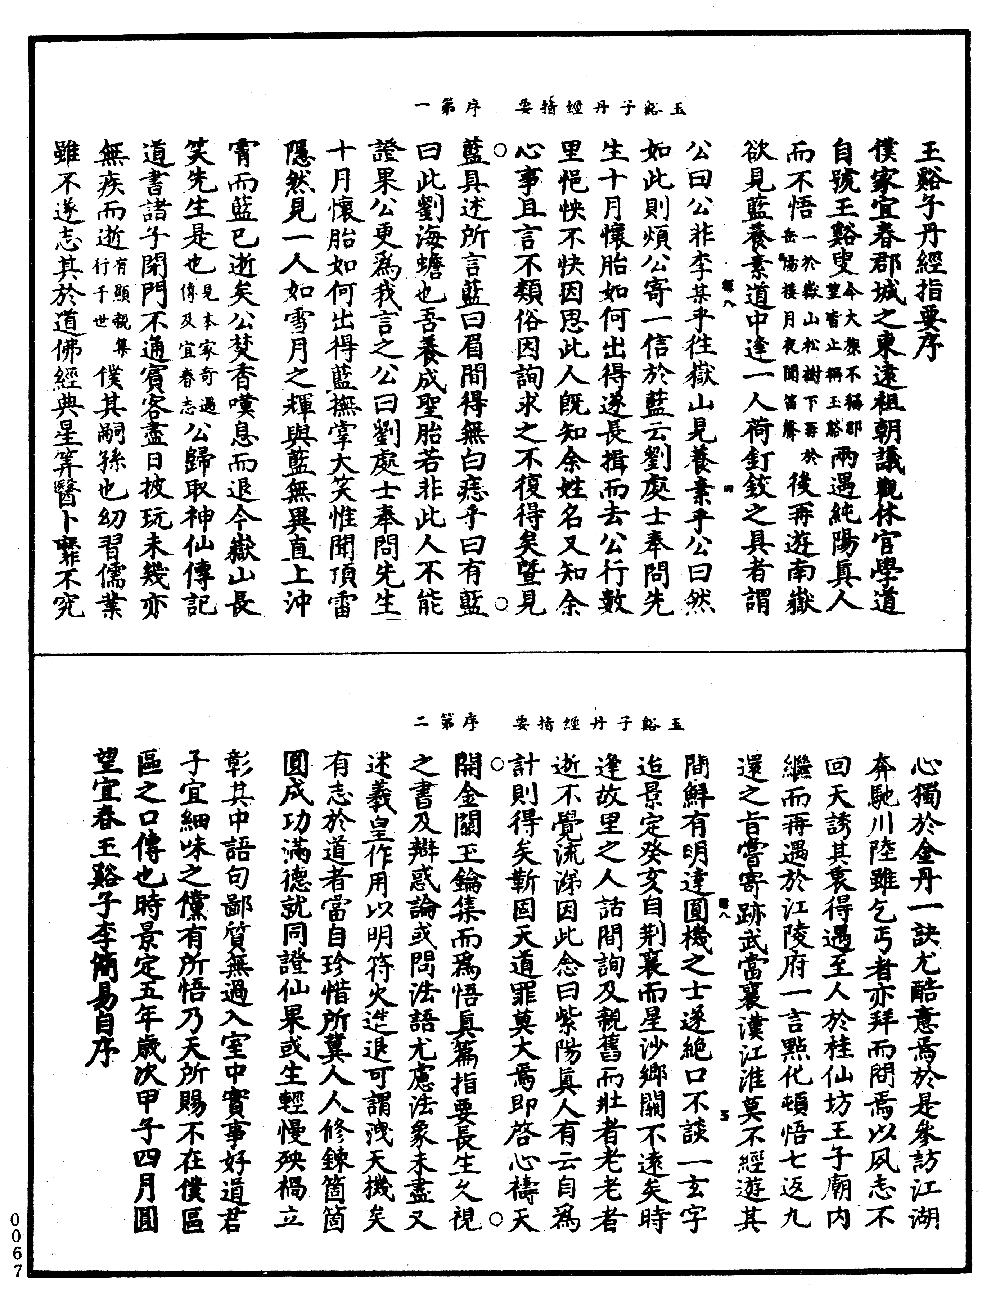 玉谿子丹經指要　序第一
玉谿子丹經指要序
僕家宜春郡城之東遠祖朝議觀休官學道
自號玉谿叟今大概不稱郡望皆止稱玉谿兩遇純陽真人
而不悟一於嶽山松樹下再於岳陽樓月夜聞笛聲後再遊南嶽
欲見藍養素道中逢一人荷釘鉸之具者謂
公曰公非李某乎往嶽山見養素乎公曰然
如此則煩公寄一信於藍云劉處士奉問先
生十月懷胎如何出得遂長揖而去公行數
里悒怏不快因思此人既知余姓名又知余
心事且言不類俗因詢求之不復得矣暨見
藍具述所言藍曰眉間得無白痣乎曰有藍
曰此劉海蟾也吾養成聖胎若非此人不能
證果公更為我言之公曰劉處士奉問先生
十月懷胎如何出得藍撫掌大笑惟聞頂雷
隱然見一人如雪月之輝與藍無異直上沖
霄而藍已逝矣公焚香嘆息而退今嶽山長
笑先生是也見本家奇遇傳及宜春志公歸取神仙傳記
道書諸子閉門不通賓客盡日披玩未幾亦
無疾而逝有顯親集行于世僕其嗣孫也幼習儒業
雖不遂志其於道佛經典星筭醫卜靡不究
玉谿子丹經指要　序第二
心獨於金丹一訣尤酷意焉於是參訪江湖
奔馳川陸雖乞丐者亦拜而問焉以夙志不
回天誘其衷得遇至人於桂仙坊王子廟內
繼而再遇於江陵府一言點化頓悟七返九
還之旨嘗寄跡武當襄漢江淮莫不經遊其
間鮮有明達圓機之士遂絕口不談一玄字
迨景定癸亥自荆襄而星沙鄉關不遠矣時
逢故里之人話間詢及親舊而壯者老老者
逝不覺流涕因此念曰紫陽真人有云自為
計則得矣靳固天道罪莫大焉即啓心禱天
開金關玉鑰集而為悟真篇指要長生久視
之書及辯惑論或問法語尤慮法象未盡又
述羲皇作用以明符火進退可謂洩天機矣
有志於道者當自珍惜所冀人人修鍊箇箇
圓成功滿德就同證仙果或生輕慢殃禍立
彰其中語句鄙質無過入室中實事好道君
子宜細味之儻有所悟乃天所賜不在僕區
區之口傳也時景定五年歲次甲子四月圓
望宜春玉谿子李簡易自序
0067